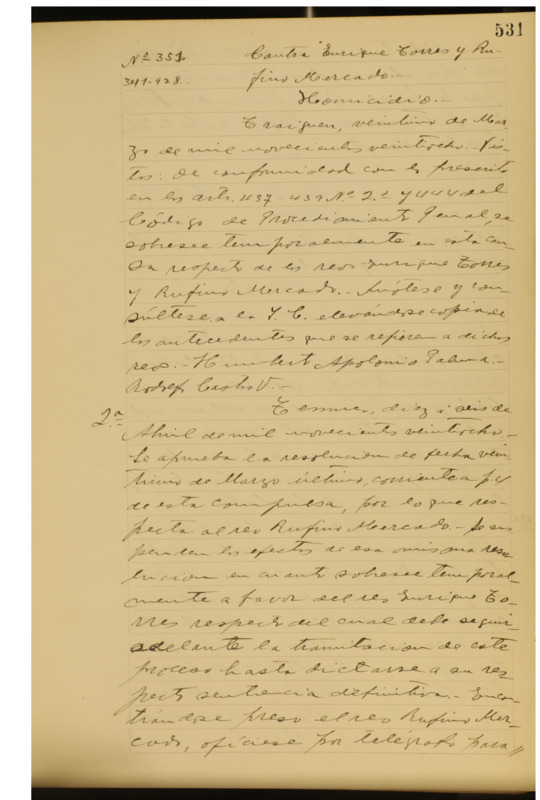 531
Nº 351. Contra Enrique Torres y Ru-
341-928 fino Mercado.-
Homicidio.-
Traiguen, veintiuno de Mar-
zo de mil novecientos veintiocho.- Vis-
tos: De conformidad con lo prescrito
en los arts. 437- 439 Nº 2.º y 444 del
Código de Procedimiento Penal, se
sobresee temporalmente en esta cau-
sa respecto de los reos Enrique Torres
y Rufino Mercado.- Anótese y con-
súltese a la I. C. elevándose copia de
los antecedentes que se refieren a dichos
reos.- Humberto Apolonio Palma.-
Rodolfo Castro V.-
2.ª Temuco, diez i seis de
Abril de mil novecientos veintiocho.-
Se aprueba la resolucion de fecha vein-
tiuno de Marzo último, corriente a f.4
de esta compulsa, por lo que res-
pecta al reo Rufino Mercado.- Se sus
penden los efectos de esa misma reso
lucion en cuanto sobresee temporal-
mente a favor del reo Enrique To-
rres respecto del cual debe seguir-
se adelante la tramitacion de este
proceso hasta dictarse a su res
pecto sentencia definitiva.- Encon-
trándose preso el reo Rufino Mer-
cado, ofíciese por telégrafo para //